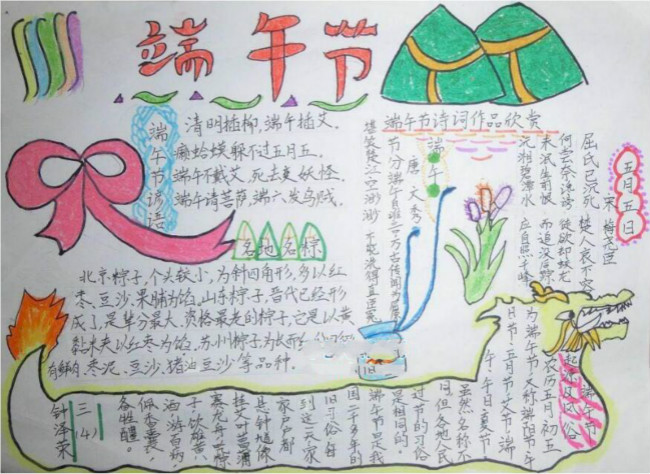 端午节
端午节谚语
清明插柳,端午插艾。
癞蛤蟆躲不过五月五。
端午不戴艾,死去变妖怪。
端午请菩萨,端六发乌贼。
各地名粽
北京粽子,个头较小,为斜四角形,多以红
枣、豆沙、果脯为馅,山东粽子,晋代已经形
成了,是单分最大、资格最老的粽子,它是以黄
黏米夹以红枣为馅,苏州粽子为长而
有鲜肉、枣泥、豆沙、猪油豆沙等品种。
端午节诗词作品欣赏
端午
唐 文秀
节分端午自谁言,万古传闻为屈原。
堪笑楚江空渺渺,不能洗得直臣冤。
五月五日
宋 梅尧臣
屈氏已沉死,楚人哀不容。
何尝奈谗谤,徒欲却蛟龙
未泯生前恨,而追没后踪
沅湘碧潭水,应自照千峰
端午节
起源及风俗
农历五月初五
为端午节,又称端阳节、午
日节、五月节、艾节、端
午、午日、夏节
虽然名称不
同,但各地人民
过节的习俗
是相同的。
端午节是我
国二千多年的
旧习俗,每
到这一天家
家户户都
悬钟馗像
挂艾叶菖蒲
赛龙舟、吃粽
子、饮雄黄
酒、游百病、
佩香囊、
备牲醴。
三(4)
钟泽荣